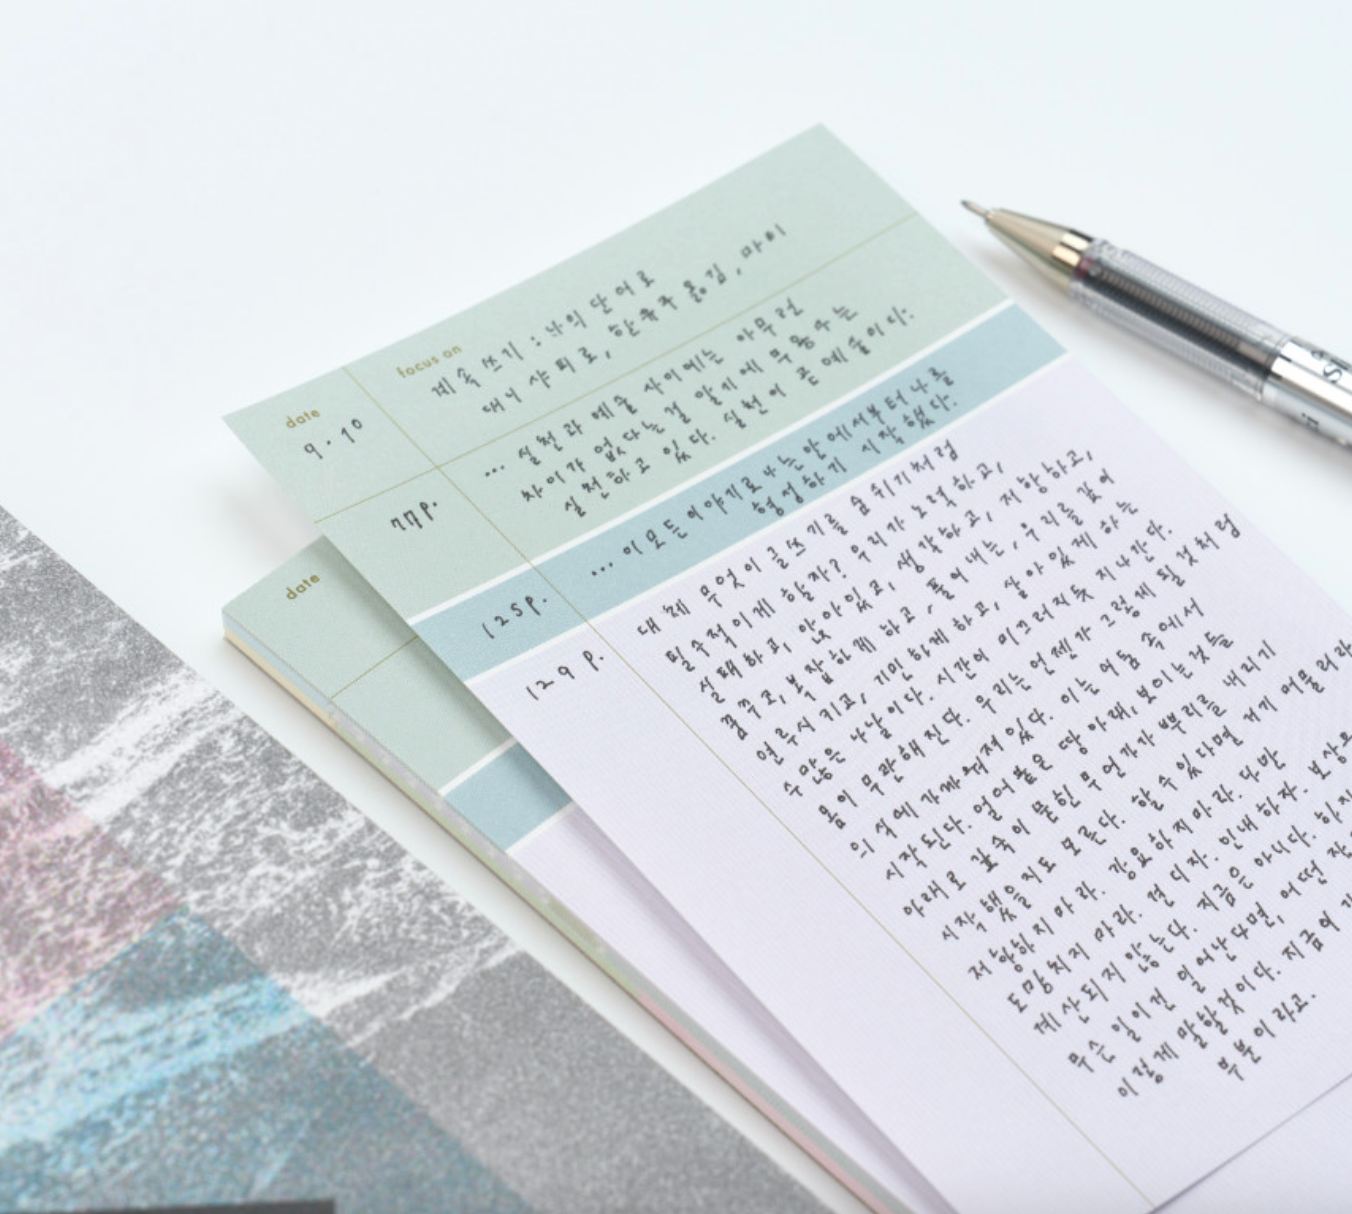 date
9.10
focus on
계속 쓰기 : 나의 단어로
대니 샤피로, 한유주 옮김, 마이
77p.
... 실천과 예술 사이에는 아무런
차이가 없다는 걸 알기에 무용수는
실천하고 있다. 실천이 곧 예술이다.
125p.
... 이 모든 이야기로 나는 안에서부터 나를
형성하기 시작했다.
129 p.
대체 무엇이 글쓰기를 숨쉬기처럼
필수적이게 할까? 우리가 노력하고,
실패하고, 앉아있고, 생각하고, 저항하고,
꿈꾸고, 복잡하게 하고, 풀어내는, 우리를 깊이
연루시키고, 기민하게 하고, 살아있게 하는
수많은 나날이다. 시간이 미끄러지듯 지나간다.
몸이 무관해진다. 우리는 언젠가 그렇게 될 것처럼
의식에 가까워져있다. 이는 어둠 속에서
시작된다. 얼어붙은 땅 아래, 보이는 것들
아래로 깊숙이 묻힌 무언가가 뿌리를 내리기
시작했을지도 모른다. 할 수 있다면 거기 머물러라
저항하지 마라. 강요하지 마라. 다만
도망치지 마라. 견디자. 인내하자. 보상은
계산되지 않는다. 지금은 아니다. 하지
무슨 일이건 일어난다면, 어떤
이렇게 말할것이다. 지금이
부분이라고.
date